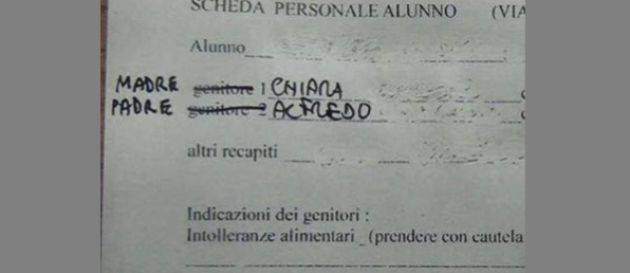 SCHEDA PERSONALE ALUNNO (VIA
Alunno
MADRE genitore 1 CHIARA
PADRE genitore 2 ALFREDO
altri recapiti
Indicazioni dei genitori :
Intolleranze alimentari (prendere con cautela